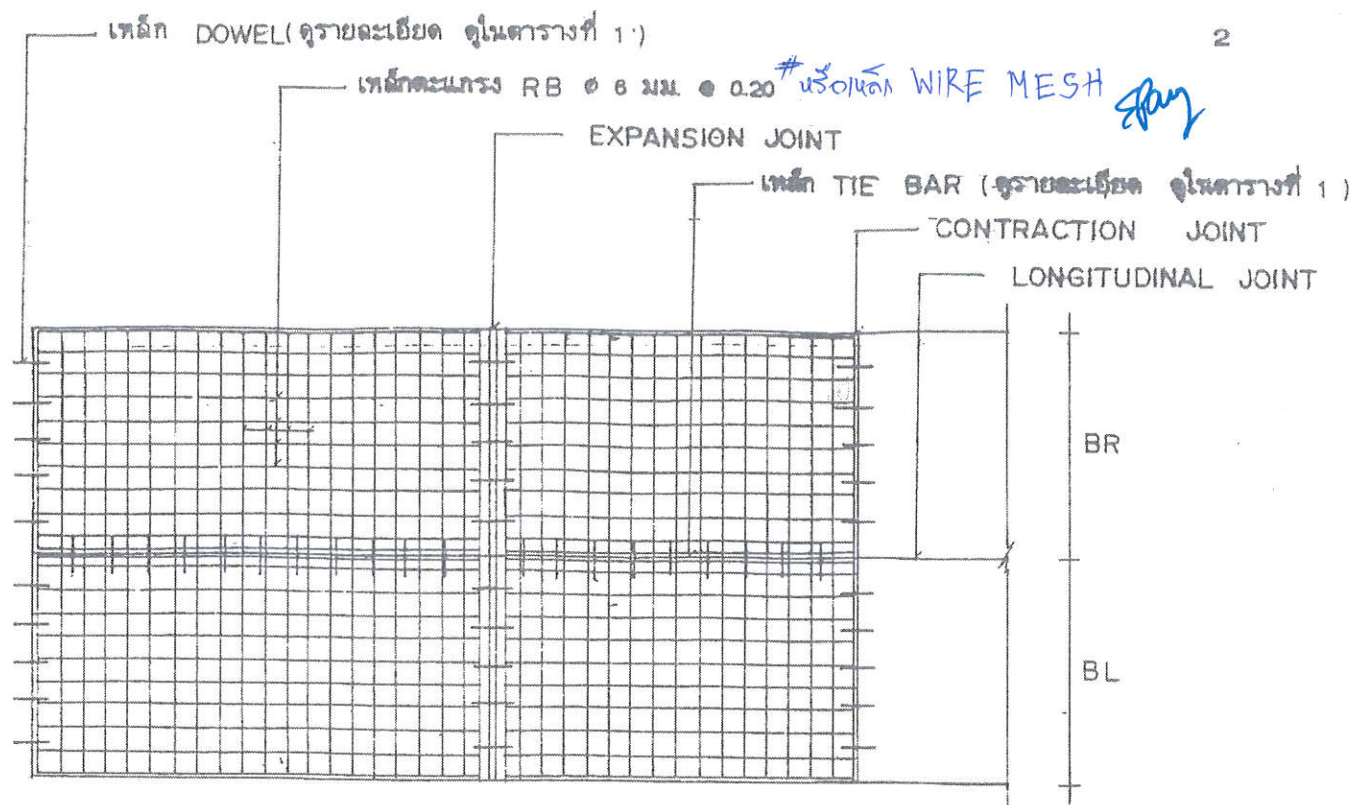 เหล็ก DOWEL (ดูรายละเอียด ดูในตารางที่ 1)
2
เหล็กตะแกรง RB ø 6 มม. @ 0.20 # หรือเหล็ก WIRE MESH
EXPANSION JOINT
เหล็ก TIE BAR (ดูรายละเอียด ดูในตารางที่ 1)
CONTRACTION JOINT
LONGITUDINAL JOINT
BR
BL